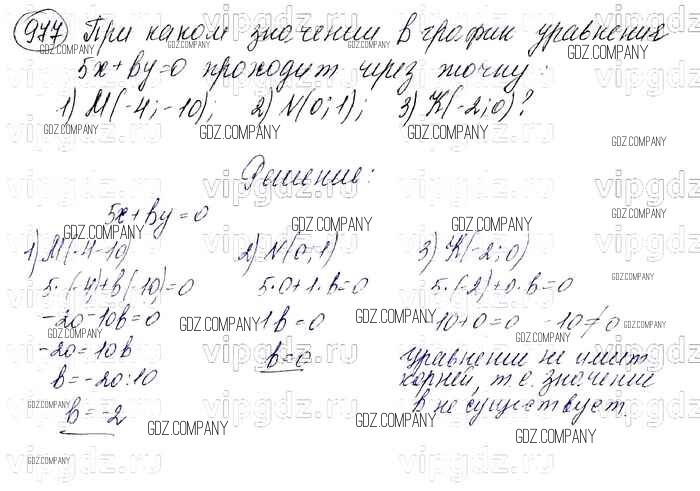 977 При каком значении в график уравнения
5x+вy=0 проходит через точку:
1) M(-4;-10); 2) N(0;1); 3) K(-2;0)?
Решение:
5x+вy=0
1) M(-4-10)
5·(-4)+в(-10)=0
-20-10в=0
-20=10в
в=-20:10
в=-2
2) N(0;1)
5·0+1·в=0
1в=0
в=0
3) K(-2;0)
5·(-2)+0·в=0
10+0=0 -10≠0
уравнении не имеит
корней, т.е. значении
в не существует.
GDZ.COMPANY
vipgdz.ru